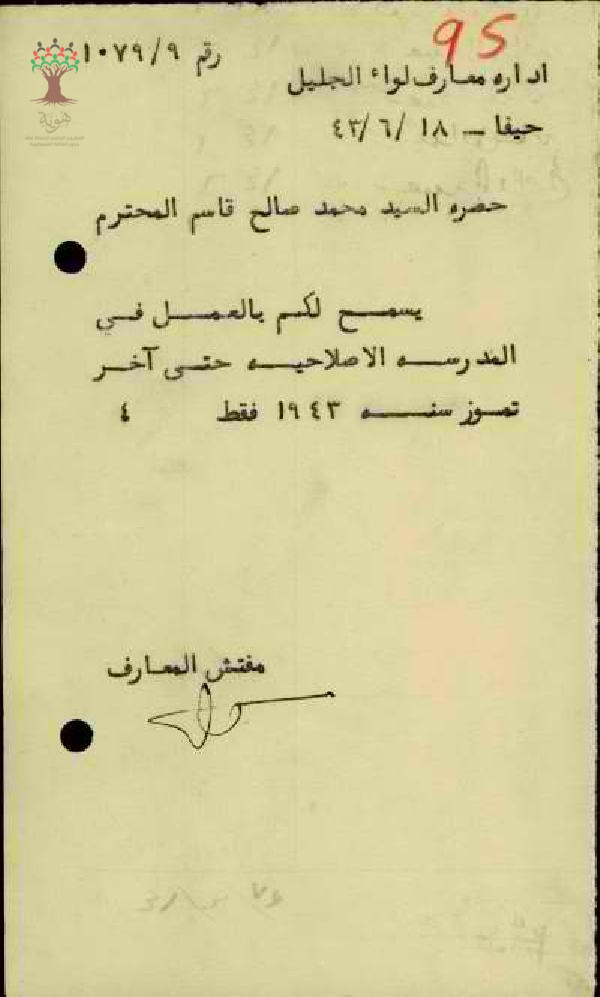 95
رقم ١٠٧٩/٩
اداره معارف لواء الجليل
حيفا – ١٨ /٦/ ٤٣
هوية
حضره السيد محمد صالح قاسم المحترم
يسمح لكم بالعمل في
المدرسه الاصلاحيه حتى آخر
تموز سنه ١٩٤٣ فقط ٤
مفتش المعارف